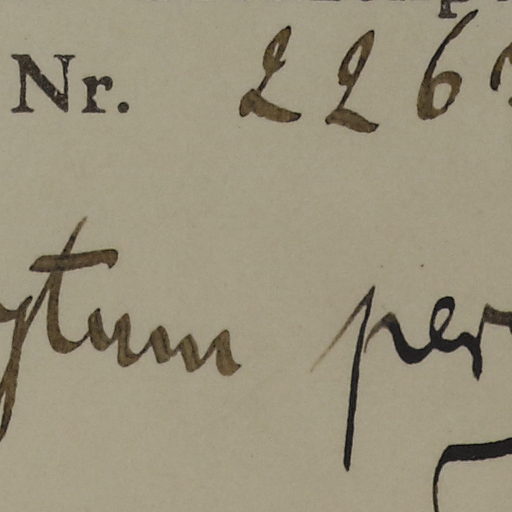 Nr. 226
ytum per